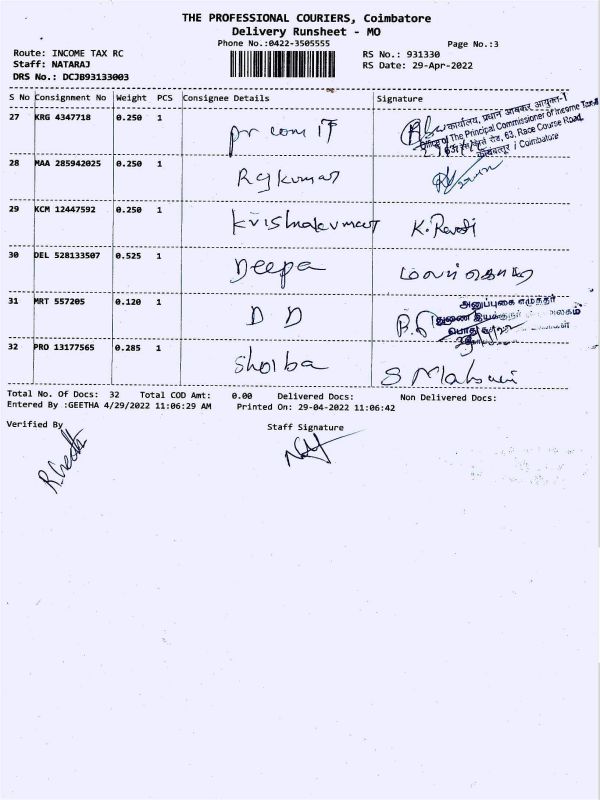 THE PROFESSIONAL COURIERS, Coimbatore
Delivery Runsheet - MO
Phone No.:0422-3505555
Page No.:3
Route: INCOME TAX RC
RS No.: 931330
Staff: NATARAJ
RS Date: 29-Apr-2022
DRS No.: DCJB93133003
S No Consignment No Weight PCS Consignee Details Signature
27 KRG 4347718 0.250 1 pr com IT
कार्यालय, प्रधान आयकर आयुक्त-1
Office of The Principal Commissioner of Income Tax-1
63, Race Course Road,
कोयंबत्तूर / Coimbatore
28 MAA 285942025 0.250 1 Rajkumar
29 KCM 12447592 0.250 1 Krishnakumar K. Revathi
30 DEL 528133507 0.525 1 Deepa
31 MRT 557205 0.120 1 D D
அனுப்புகை எழுத்தர்
32 PRO 13177565 0.285 1
Total No. Of Docs: 32 Total COD Amt: 0.00 Delivered Docs: Non Delivered Docs:
Entered By :GEETHA 4/29/2022 11:06:29 AM Printed On: 29-04-2022 11:06:42
Verified By Staff Signature
R. Geetha